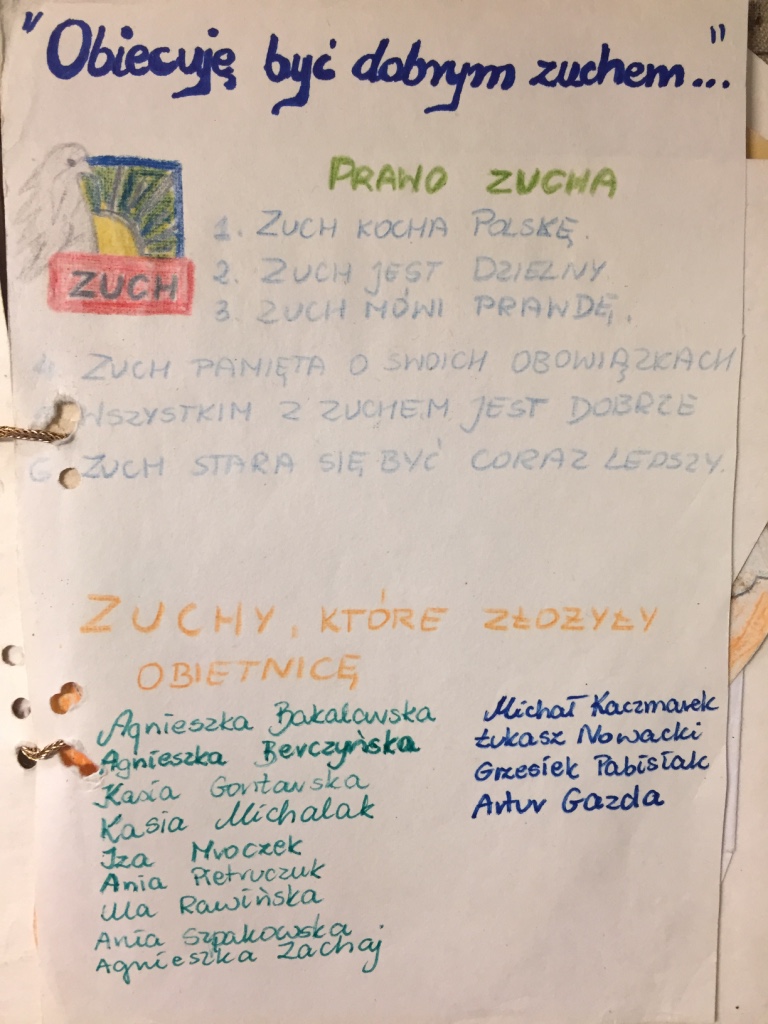 "Obiecuję być dobrym zuchem..."
PRAWO ZUCHA
ZUCH
1. ZUCH KOCHA POLSKĘ.
2. ZUCH JEST DZIELNY
3. ZUCH MÓWI PRAWDĘ.
4. ZUCH PAMIĘTA O SWOICH OBOWIĄZKACH
WSZYSTKIM Z ZUCHEM JEST DOBRZE
6. ZUCH STARA SIĘ BYĆ CORAZ LEPSZY.
ZUCHY, KTÓRE ZŁOŻYŁY
OBIETNICĘ
Agnieszka Bakalawska
Agnieszka Berczyńska
Kasia
Kasia Michalak
Iza Mroczek
Ania Pietruczuk
Ula Rawińska
Ania Szpakowska
Agnieszka Zachaj
Michał Kaczmarek
Łukasz Nowacki
Grzesiek Pabisiak
Artur Gazda